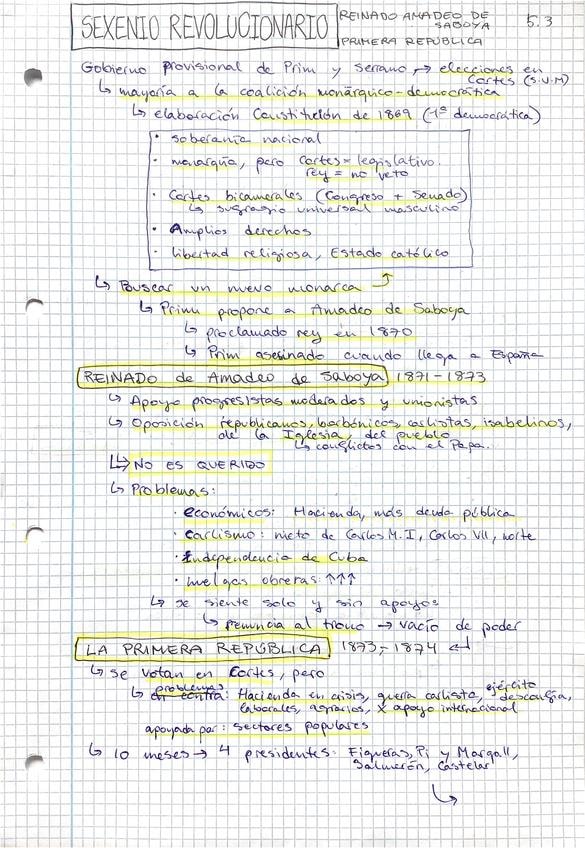 SEXENIO REVOLUCIONARIO
REINADO AMADEO DE SABOYA
PRIMERA REPÚBLICA
5.3
Gobierno provisional de Prim y Serrano → elecciones en Cortes (S.U.M)
↳ mayoría a la coalición monárquico-democrática
↳ elaboración Constitución de 1869 (1ª democrática)
· soberanía nacional
· monarquía, pero Cortes = legislativo.
rey = no veto
· Cortes bicamerales (Congreso + Senado)
↳ sugragio universal masculino
· Amplios derechos
· libertad religiosa, Estado católico
↳ Buscar un nuevo monarca
↳ Prim propone a Amadeo de Saboya
↳ proclamado rey en 1870
↳ Prim asesinado cuando llega a España
REINADO de Amadeo de Saboya 1871-1873
↳ Apoyo progresistas moderados y unionistas
↳ Oposición republicanos, borbónicos, carlistas, isabelinos,
de la Iglesia, del pueblo
↳ conflictos con el Papa.
↳ NO ES QUERIDO
↳ Problemas:
· económicos: Hacienda, más deuda pública
· carlismo: nieto de Carlos M.I, Carlos VII, norte
· Independencia de Cuba
· huelgas obreras: ↑↑↑
↳ se siente solo y sin apoyos
↳ renuncia al trono → vacío de poder
LA PRIMERA REPÚBLICA 1873-1874 ↵
↳ se votan en Cortes, pero
↳ problemas: Hacienda en crisis, guerra carlista, ejército desconfía,
laborales, agrarios, X apoyo internacional
apoyada por: sectores populares
↳ 10 meses → 4 presidentes: Figueras, Pi y Margall,
Salmerón, Castelar
↳